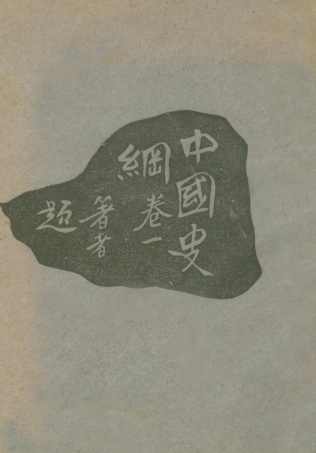 中國史
綱卷一
著者
題